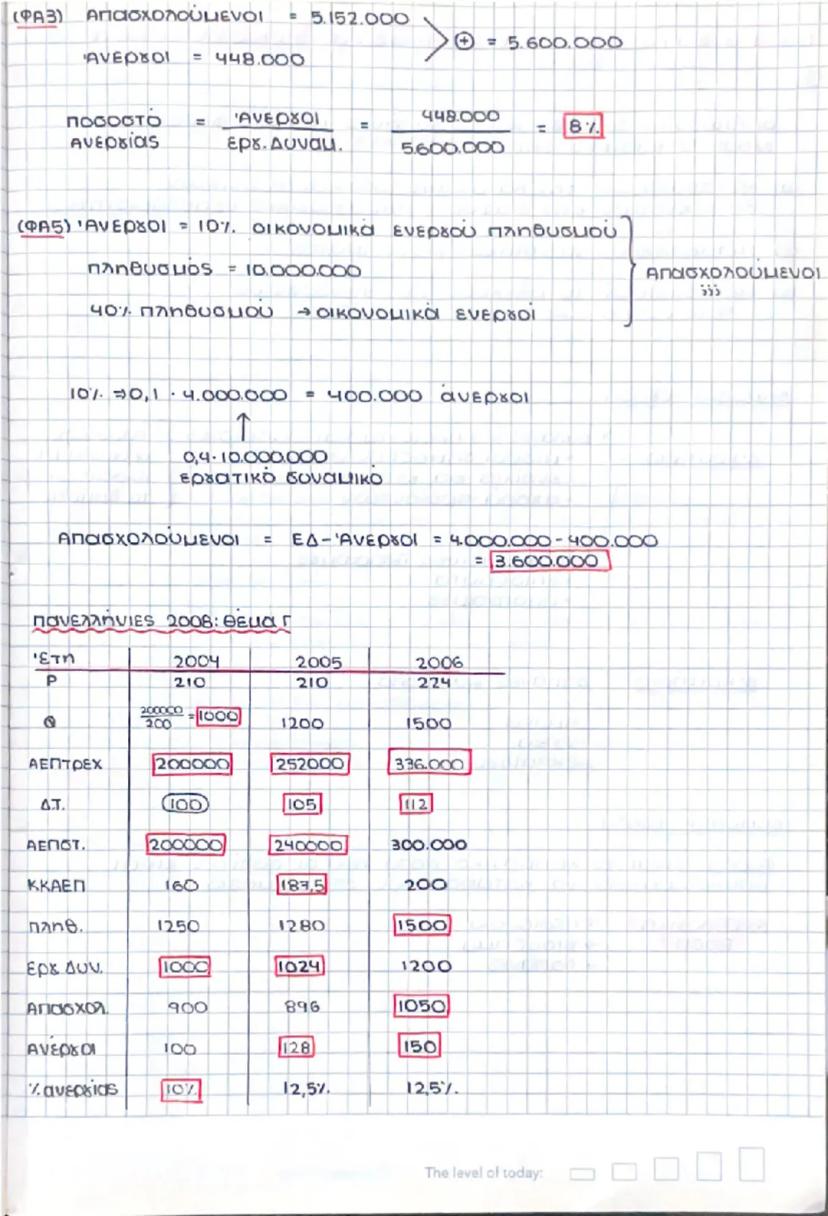 (ΦΑ3) Απασχολούμενοι = 5.152.000
⊕ = 5.600.000
Άνεργοι = 448.000
Ποσοστό Ανεργίας = Άνεργοι / Εργ. Δυναμ. = 448.000 / 5.600.000 = 8%
(ΦΑ5) Άνεργοι = 10% οικονομικά ενεργού πληθυσμού
Πληθυσμός = 10.000.000
Απασχολούμενοι
;;;
40% πληθυσμού → οικονομικά ενεργοί
10% ⇒ 0,1 · 4.000.000 = 400.000 άνεργοι
↑
0,4·10.000.000
εργατικό δυναμικό
Απασχολούμενοι = ΕΔ - Άνεργοι = 4.000.000 - 400.000
= 3.600.000
Πανελλήνιες 2008: Θέμα Γ
Έτη 2004 2005 2006
P 210 210 224
Q 200000/200 = 1000 1200 1500
ΑΕΠτρεχ 200000 252000 336.000
Δ.Τ. 100 105 112
ΑΕΠστ. 200000 240000 300.000
ΚΚΑΕΠ 160 187,5 200
Πληθ. 1250 1280 1500
Εργ Δυν. 1000 1024 1200
Απασχολ. 900 896 1050
Άνεργοι 100 128 150
% ανεργίας 10% 12,5% 12,5%.
The level of today: